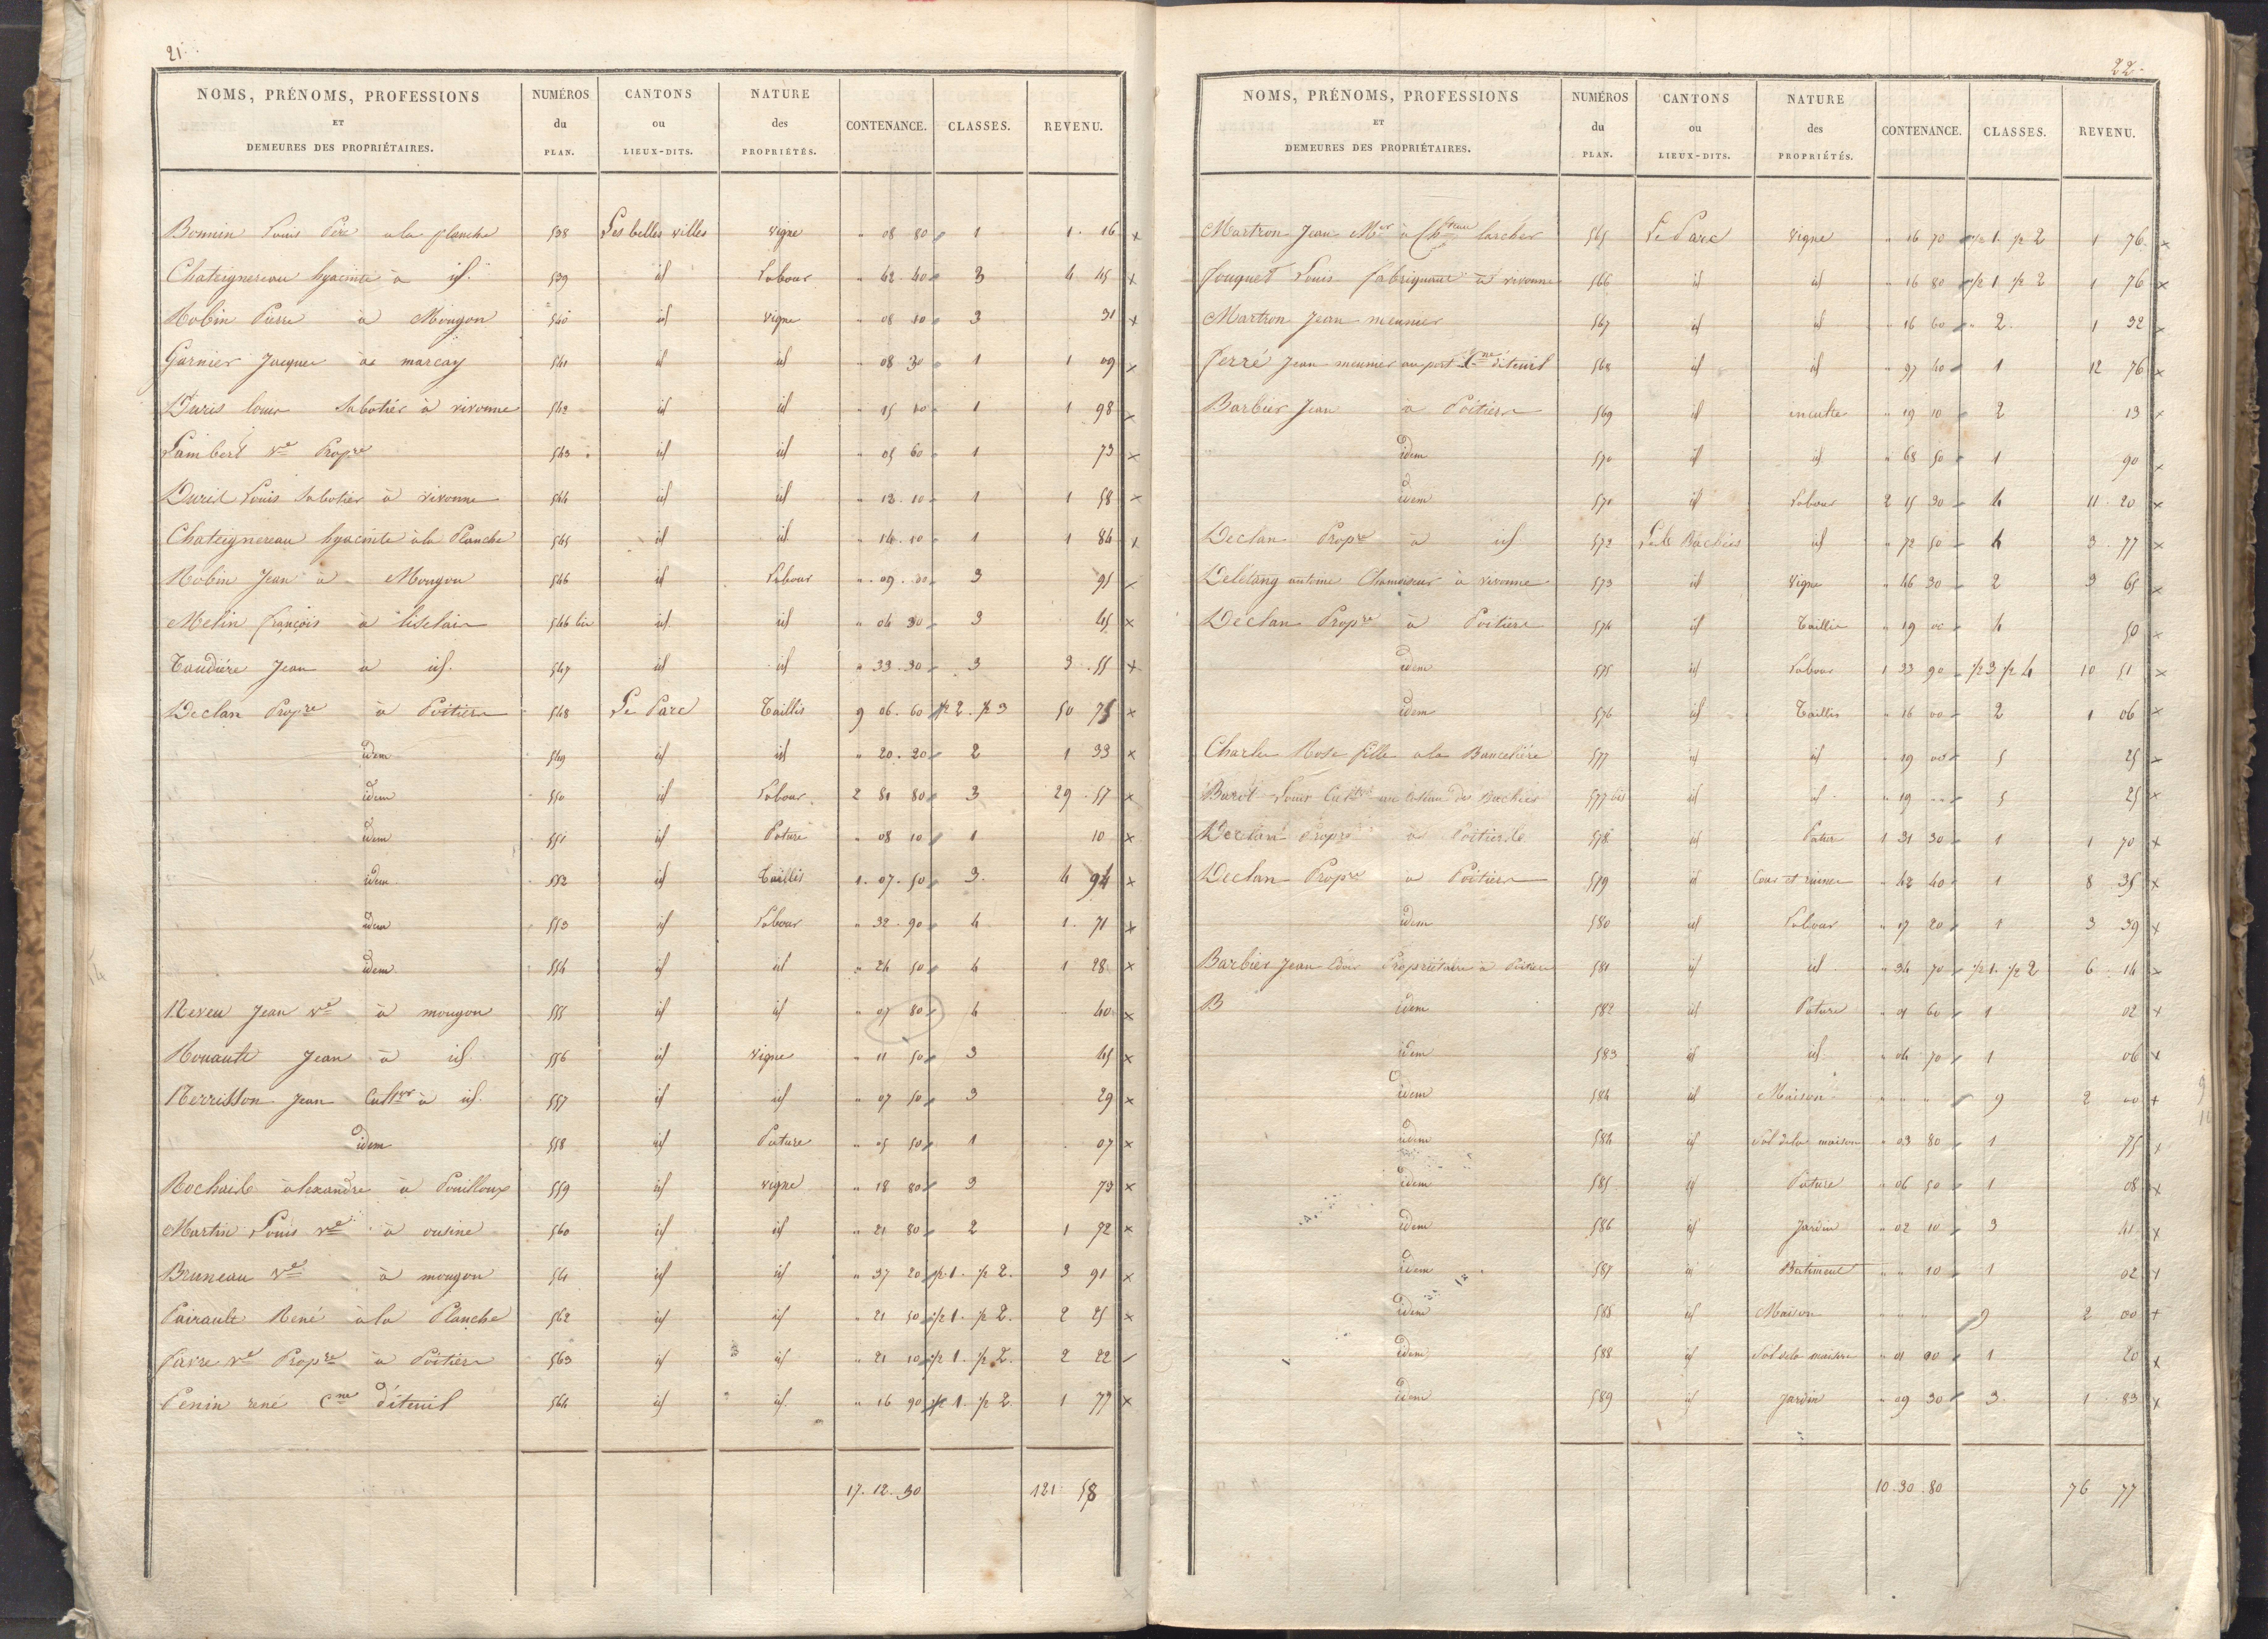 21.
NOMS, PRÉNOMS, PROFESSIONS ET DEMEURES DES PROPRIÉTAIRES. | NUMÉROS du PLAN. | CANTONS ou LIEUX-DITS. | NATURE des PROPRIÉTÉS. | CONTENANCE. | CLASSES. | REVENU.
Bonnin Louis Père a la planche 538 Les belles villes vigne " 08 80 1 1. 16 x
Chateignereau hyacinte à id. 539 id Labour " 62. 40 3 4. 45 x
Robin Pierre à Mougon 540 id vigne " 08 10 3 31 x
Garnier Jacques à marcay 541 id id " 08 30 1 1 09 x
Duris louis Sabotier à vivonne 542 id id " 15 10 1 1 98
Lambert ve Propre 543 id id " 05 60 1 73 x
Duris Louis Sabotier à vivonne 544 id id " 12. 10 1 1 58 x
Chateignereau hyacinte à la Planche 545 id id " 14. 10 1 1 84 x
Robin Jean à Mougon 546 id Labour " 09. 3 95
Melin françois à 546 bis id id " 04 30 3 45 x
Taudière Jean à id. 547 id id " 33. 30 3 3. 55 x
Declan Propre à Poitiers 548 Le Parc Taillis 9 06. 60 1/2 2. 1/2 3 50 75 x
idem 549 id id " 20. 20 2 1 33 x
idem 550 id Labour 2 81 80 3 29. 57 x
idem 551 id Pature " 08 10 1 10 x
idem 552 id Taillis 1. 07. 50 3. 4 94 x
idem 553 id Labour " 32. 90 4 1. 71 x
idem 554 id id " 24 50 4 1 28 x
Neveu Jean ve à mougon 555 id id " 07 80 4 40 x
Rouault Jean à id 556 id vigne " 11 50 3 45 x
Merrisson Jean Cultr à id. 557 id id " 07 50 3 29 x
idem 558 id Pature " 05 50 1 07 x
alexandre à Pouilloux 559 id vigne " 18 80 3 73 x
Martin Louis ve à ousine 560 id id " 21 80 2 1 72 x
Bruneau ve à mougon 561 id id " 37 20 1/2 1. 1/2 2. 3 91 x
Pairault René à la Planche 562 id id " 21 50 1/2 1. 1/2 2. 2 25 x
Faire ve Propre à Poitiers 563 id id " 21 10 1/2 1. 1/2 2. 2 22
Penin rené Cne d'iteuil 564 id id. " 16 90 1/2 1. 1/2 2 1 77 x
17. 12. 30 121 58
22.
NOMS, PRÉNOMS, PROFESSIONS ET DEMEURES DES PROPRIÉTAIRES. | NUMÉROS du PLAN. | CANTONS ou LIEUX-DITS. | NATURE des PROPRIÉTÉS. | CONTENANCE. | CLASSES. | REVENU.
Martron Jean Mer à Chteau larcher 565 Le Parc vigne " 16 70 1/2 1. 1/2 2 1 76 x
fouquet Louis fabriquant à vivonne 566 id id " 16 80 1/2 1 1/2 2 1 76 x
Martron Jean meunier 567 id id " 16 60 2. 1 32 x
ferré Jean meunier au port Cne d'iteuil 568 id id " 97 40 1 12 76 x
Barbier Jean à Poitiers 569 id inculte " 19 10 2 13 x
idem 570 id id. " 68 50 1 90 x
idem 571 id Labour 2 15 30 4 11. 20 x
Declan Propre à id 572 Bachées id " 72 50 4 3. 77 x
Deletang antoine Chamoiseur à vivonne 573 id vigne " 46 30 2 3 65 x
Declan Propre à Poitiers 574 id Taillis " 19 00 4 50 x
idem 575 id Labour 1 33 90 1/2 3 1/2 4 10 51 x
idem 576 id Taillis " 16 00 2 1 06 x
Charles Rose fille a la 577 id id " 19 00 5 25 x
Louis Cultr 577 bis id id " 19 5 25 x
Declan Propre à Poitiers 578 id Pature 1 31 30 1 1 70 x
Declan Propre à Poitiers 579 id Cour et ruines " 42 40 1 8 35 x
idem 580 id Labour " 17 20 1 3 39 x
Barbier Jean Propriétaire à Poitiers 581 id id " 34 70 1/2 1. 1/2 2 6. 14 x
B idem 582 id Pature " 01 60 1 02 x
idem 583 id id. " 04 70 1 06 x
idem 584 id Maison " " " 9 2 00 +
idem 584 id Sol de la maison " 03 80 1 75 x
idem 585 id Pature " 06 50 1 08 x
idem 586 id Jardin " 02 10 3 41 x
idem 587 id Batiment " " 10 1 02 x
idem 588 id Maison " " " 9 2 00 +
idem 588 id Sol de la maison " 01 00 1 20 x
idem 589 id Jardin " 09 30 3. 1 83 x
10. 30 80 76 77